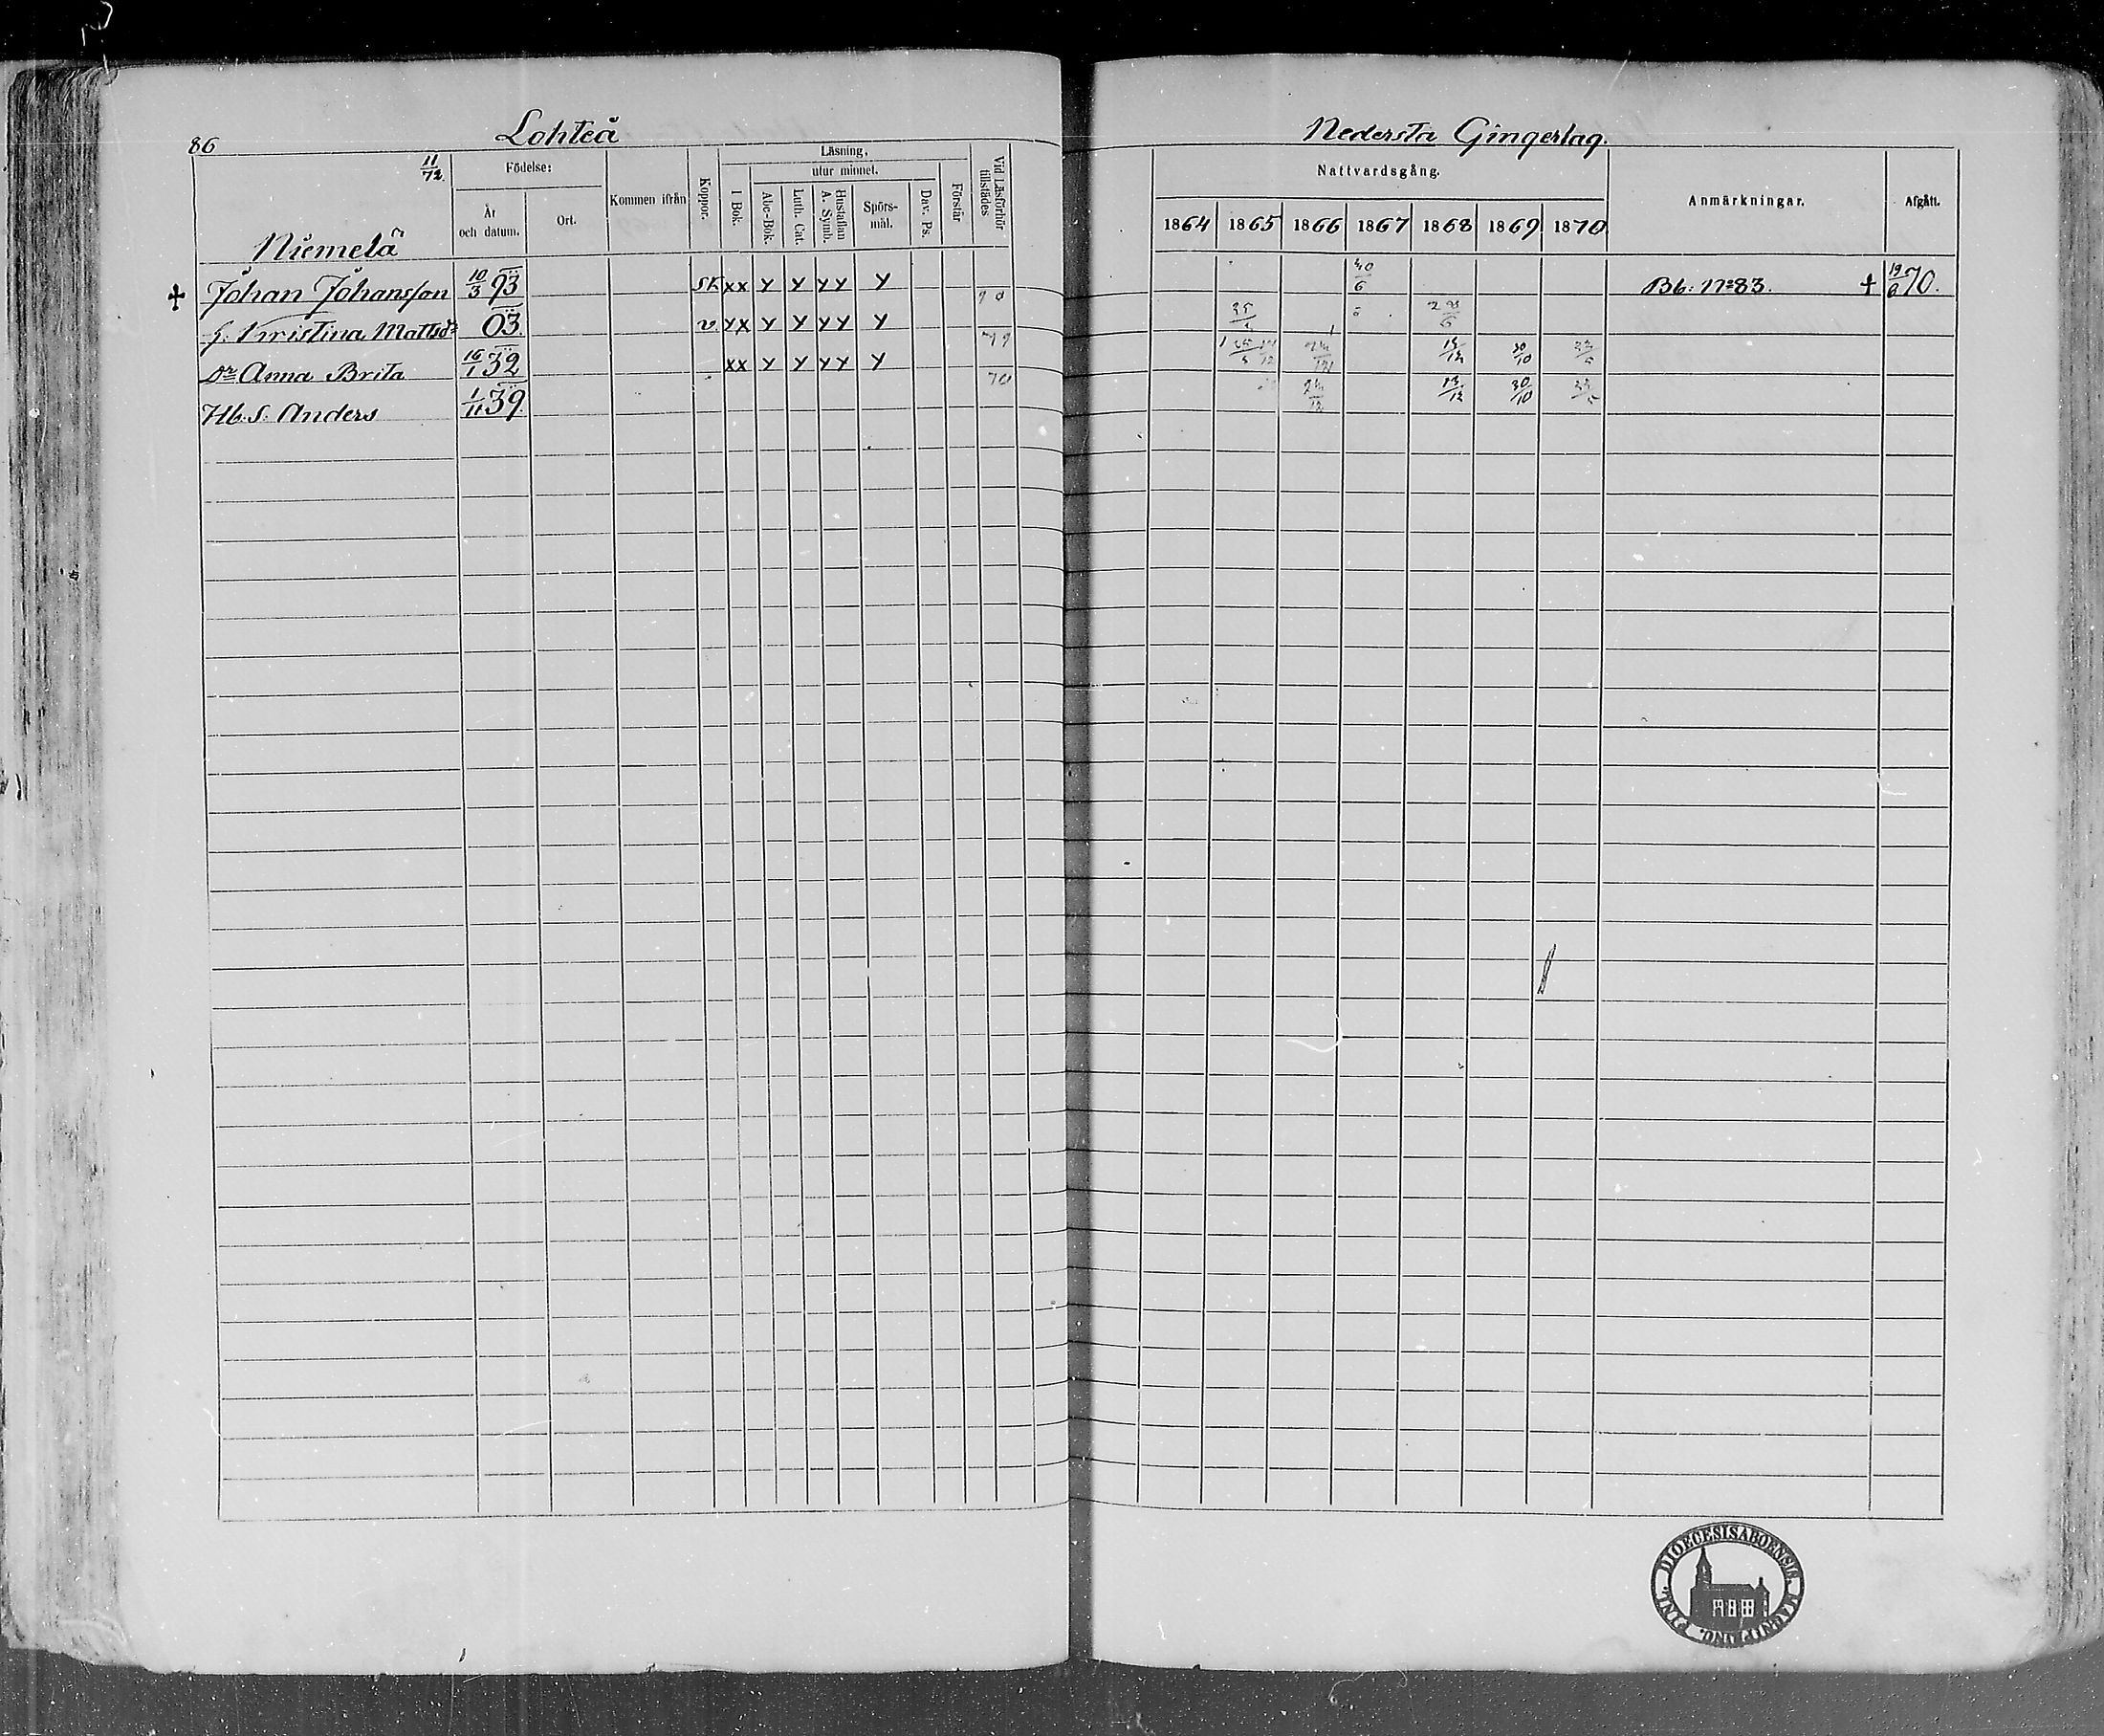 86
Lohteå
11/72.
Födelse:
År och datum.
Ort.
Kommen ifrån
Koppor.
Läsning,
I Bok.
utur minnet.
Abc-Bok.
Luth. Cat.
Hustaflan A. Symb.
Spörs-mål.
Dav. Ps.
Förstår
Vid Läsförhör tillstädes
Niemelä
Johan Johansson 10/3 93 xx y y yy y
h. Kristina Mattsdr 03. v yx y y yy y 70
Dr Anna Brita 16/1 32 xx y y yy y
Hb. S. Anders 1/11 39. 70
Nedersta Gingerlag.
Nattvardsgång.
1864 1865 1866 1867 1868 1869 1870
Anmärkningar.
Afgått.
Bb: No 83. † 19/6 70.
13/12 30/10
13/12 30/10
DIOECESIS ABOENSIS